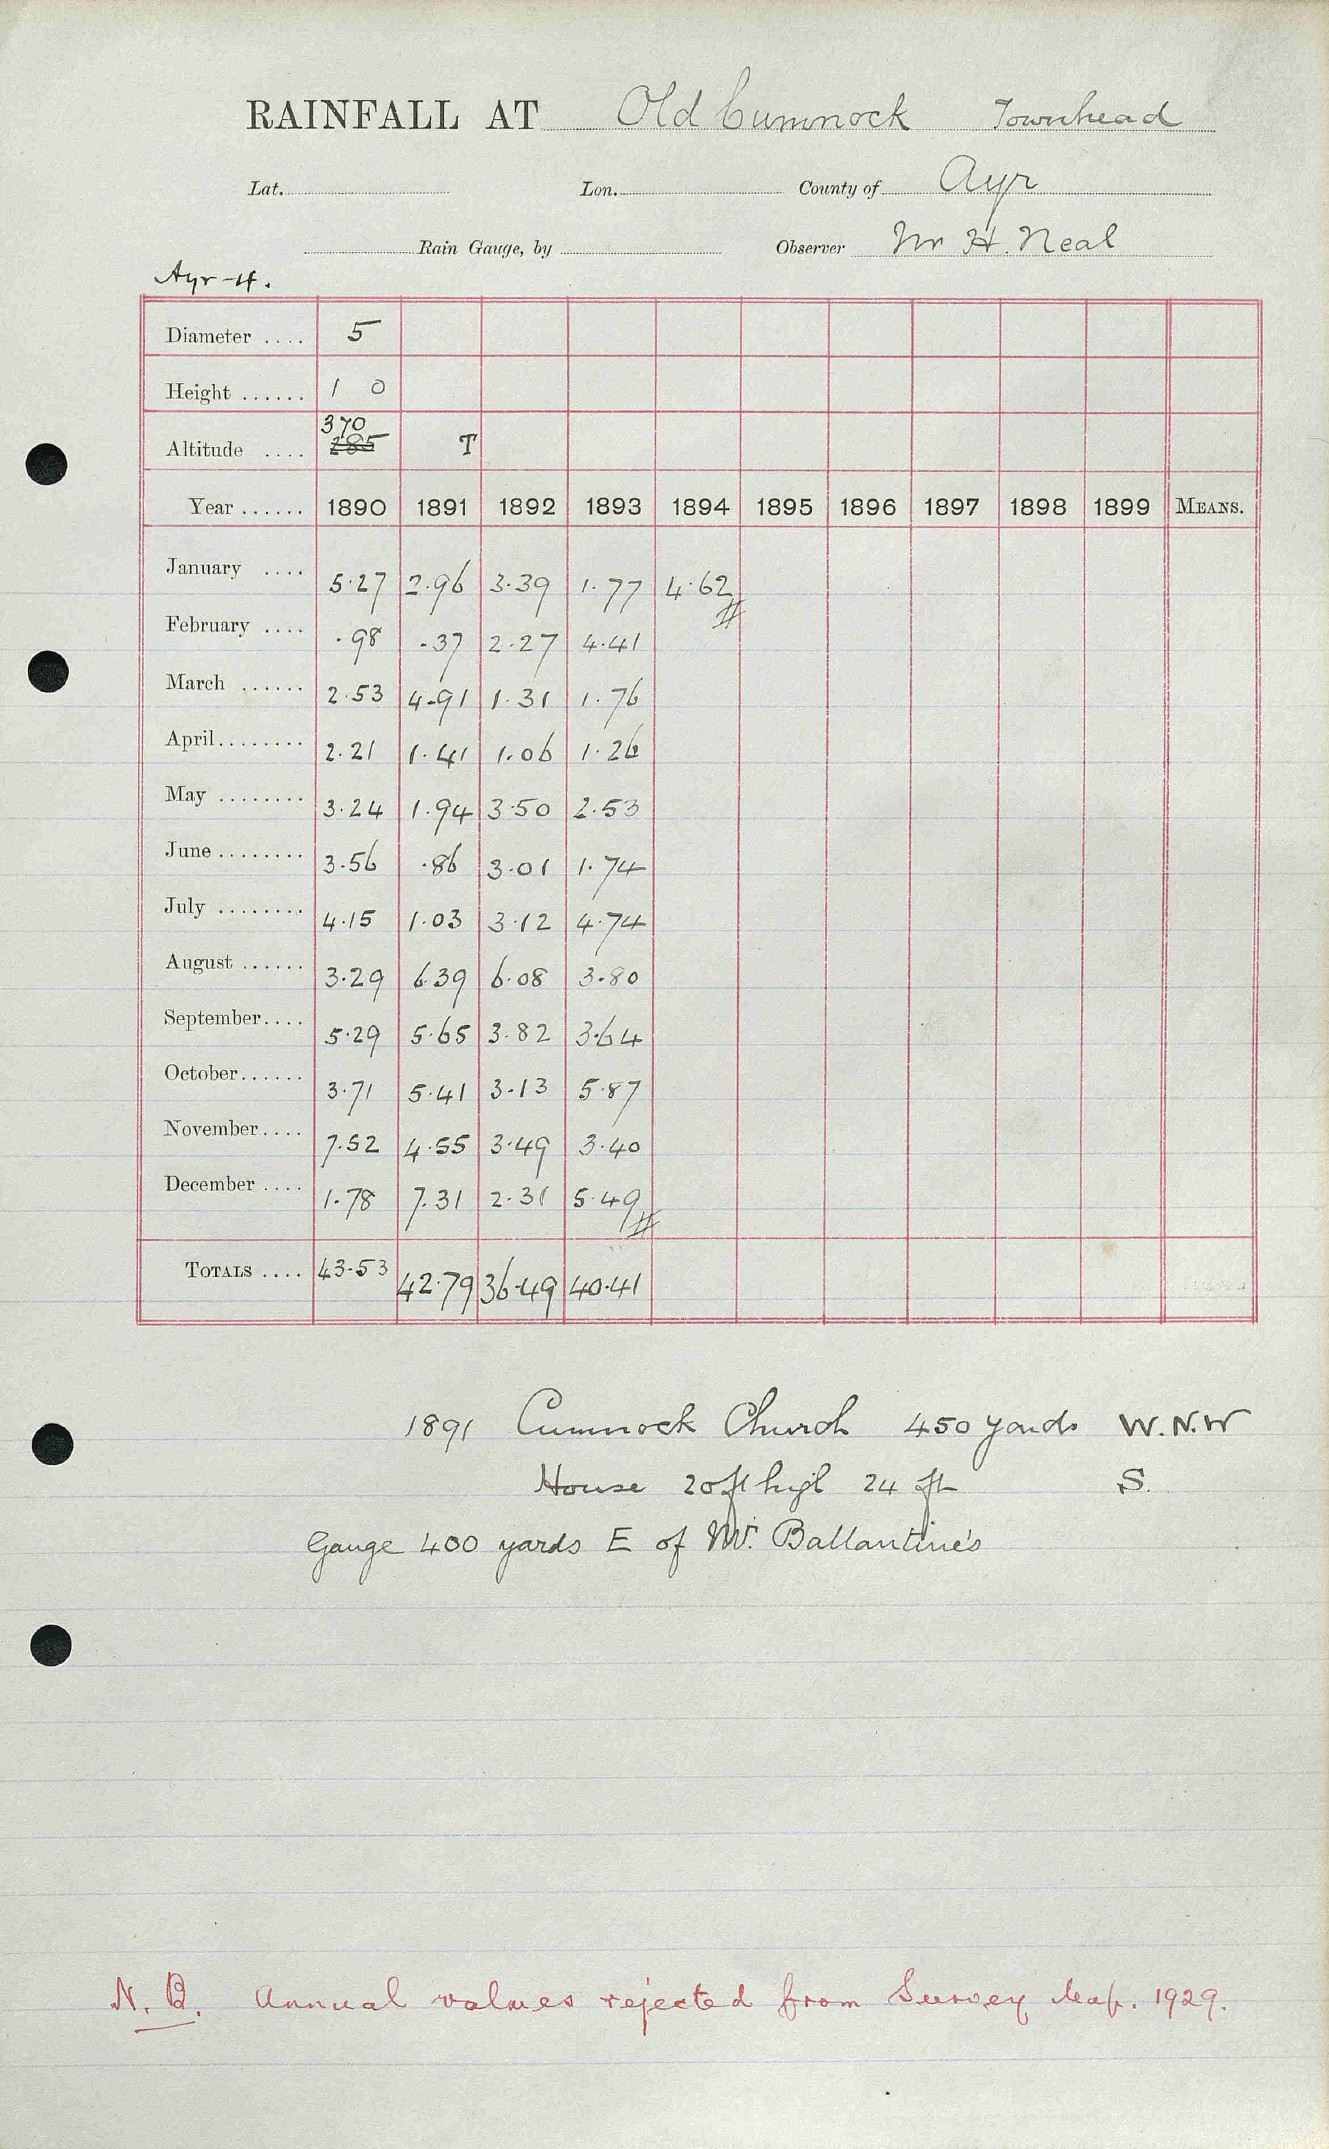 RAINFALL AT Old Cumnock Townhead
Lat. Lon. County of Ayr
Rain Gauge, by Observer Mr H. Neal
Ayr-4.
Diameter .... 5
Height ...... 1 0
370
Altitude .... 285 T
Year ...... 1890 1891 1892 1893 1894 1895 1896 1897 1898 1899 MEANS.
January .... 5.27 2.96 3.39 1.77 4.62
February .... .98 .37 2.27 4.41
March ...... 2.53 4.91 1.31 1.76
April........ 2.21 1.41 1.06 1.26
May ........ 3.24 1.94 3.50 2.53
June ........ 3.56 .86 3.01 1.74
July ........ 4.15 1.03 3.12 4.74
August ...... 3.29 6.39 6.08 3.80
September.... 5.29 5.65 3.82 3.64
October...... 3.71 5.41 3.13 5.87
November.... 7.52 4.55 3.49 3.40
December .... 1.78 7.31 2.31 5.49
TOTALS .... 43.53 42.79 36.49 40.41
1891 Cumnock Church 450 yards W.N.W
House 20 ft high 24 ft S.
Gauge 400 yards E of Mr. Ballantine's
N. B. Annual values rejected from Survey Map. 1929.